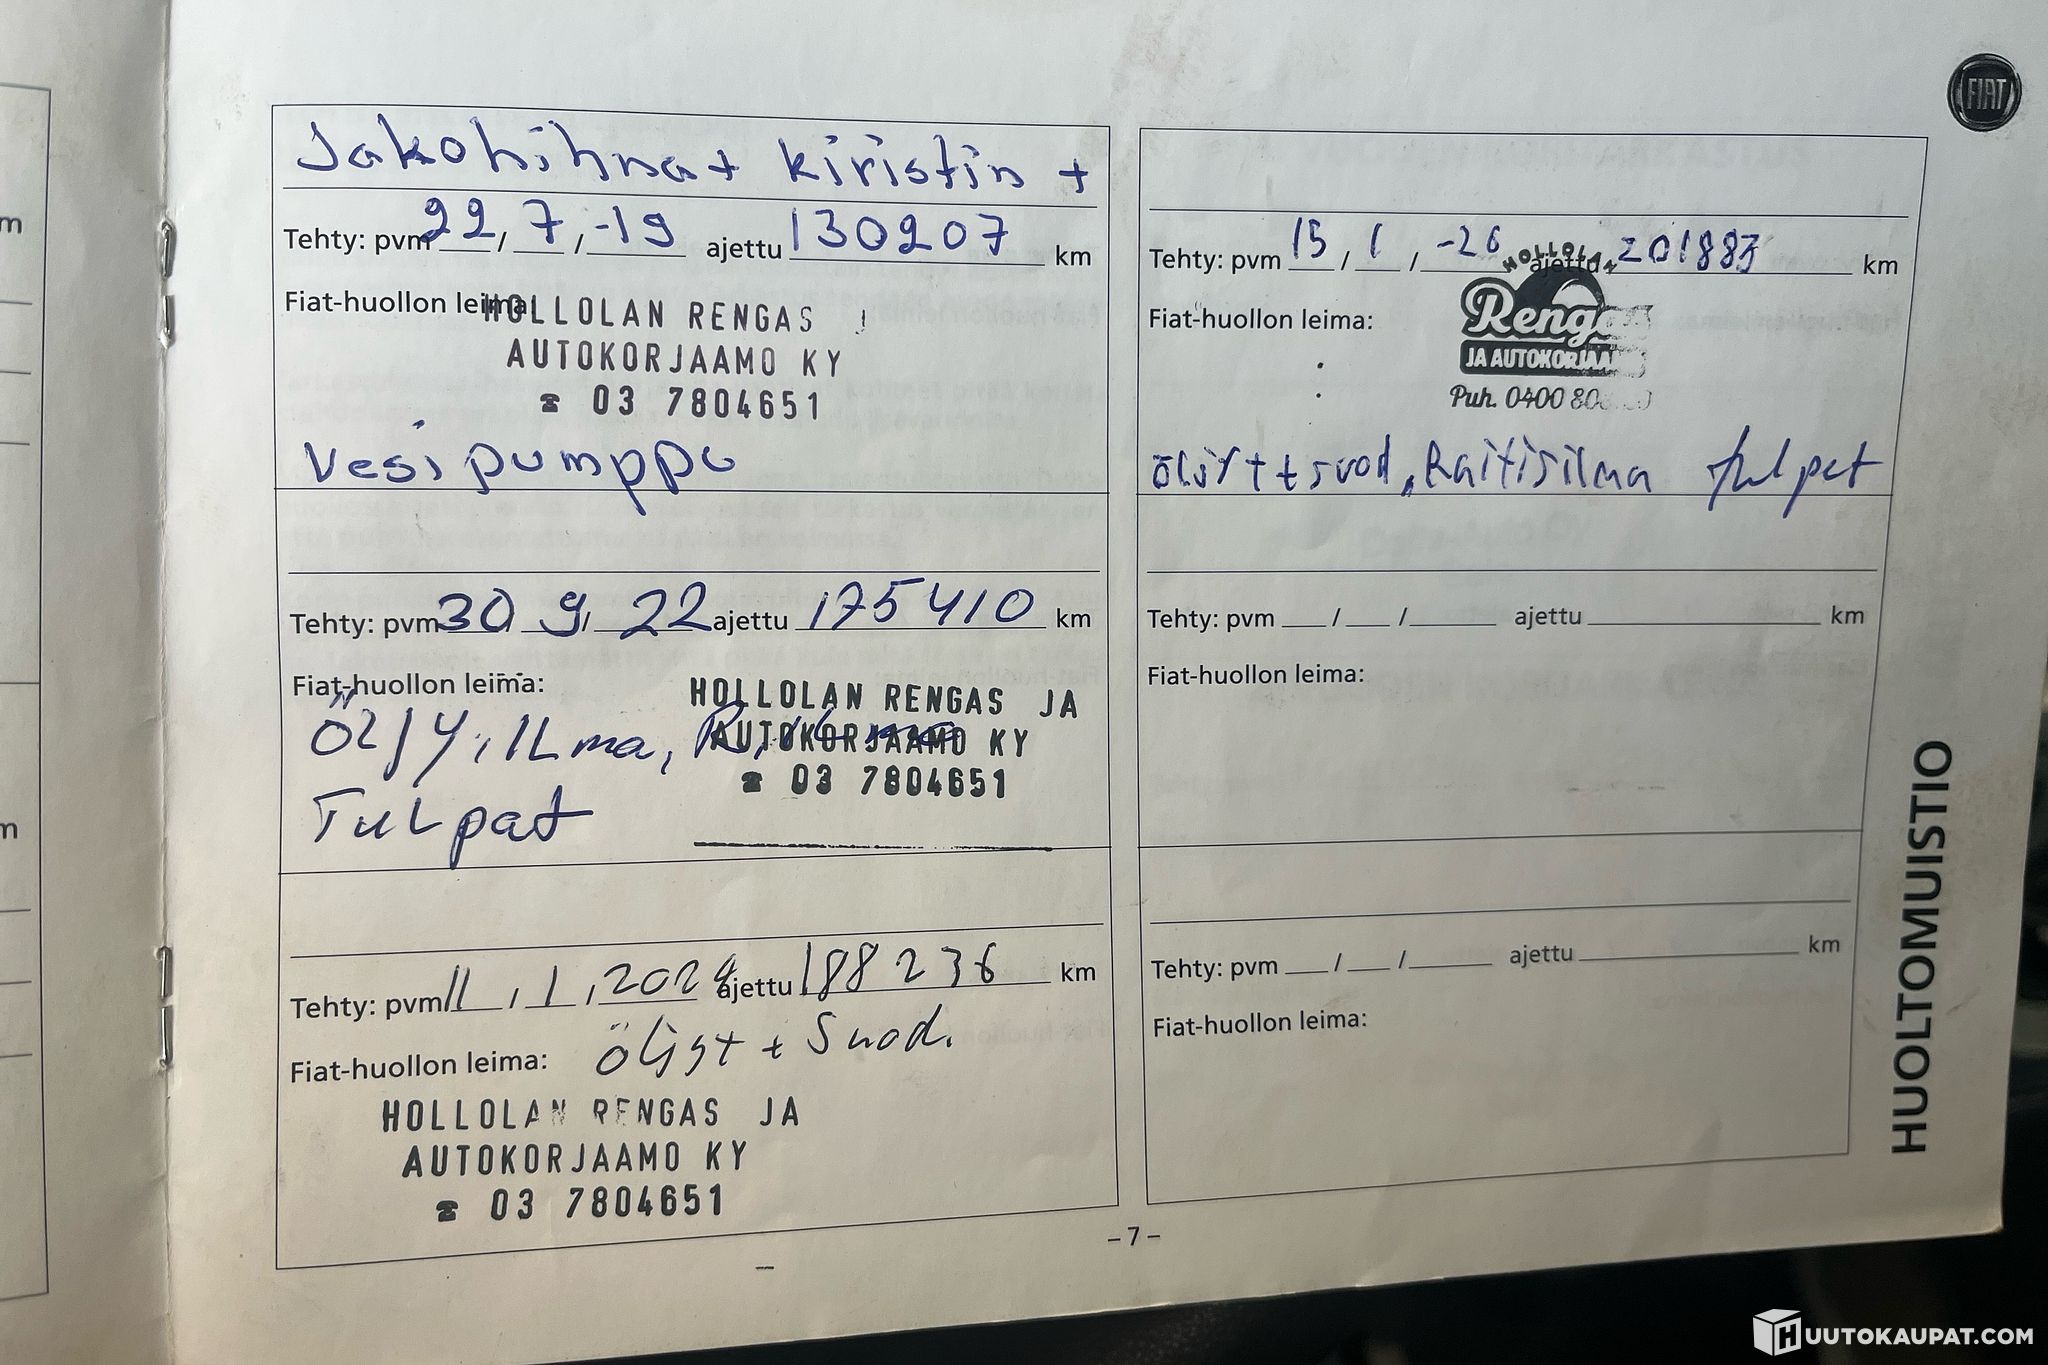 m
m
FIAT
Jakohihna+ kiristin +
Tehty: pvm 22 / 7 / -19 ajettu 130207 km
Fiat-huollon leima:
HOLLOLAN RENGAS J
AUTOKORJAAMO KY
☎ 03 7804651
Vesipumppu
Tehty: pvm 30 / 9 / 22 ajettu 175410 km
Fiat-huollon leima:
HOLLOLAN RENGAS JA
AUTOKORJAAMO KY
☎ 03 7804651
Öljy, ilma, R, ilma
Tulpat
Tehty: pvm 11 / 1 / 2024 ajettu 188236 km
Fiat-huollon leima: öljyt + Suod.
HOLLOLAN RENGAS JA
AUTOKORJAAMO KY
☎ 03 7804651
Tehty: pvm 15 / 1 / -26 ajettu 201883 km
Fiat-huollon leima:
HOLLOLAN
Rengas
JA AUTOKORJAA
Puh. 0400 80
öljyt + suod, Raitisilma tulpat
Tehty: pvm / / ajettu km
Fiat-huollon leima:
Tehty: pvm / / ajettu km
Fiat-huollon leima:
HUOLTOMUISTIO
– 7 –
HUUTOKAUPAT.COM